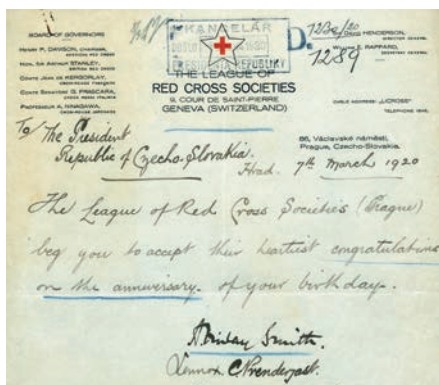 BOARD OF GOVERNORS
HENRY P. DAVISON, CHAIRMAN,
AMERICAN RED CROSS
HON. SIR ARTHUR STANLEY,
BRITISH RED CROSS
COMTE JEAN DE KERGORLAY,
CROIX-ROUGE FRANÇAISE
COMTE SENATORE G. FRASCARA,
CROCE ROSSA ITALIANA
PROFESSOR A. NINAGAWA,
CROIX-ROUGE JAPONAISE
KANCELÁŘ
PRESIDENTA REPUBLIKY
D. 1230/20
1289
HENDERSON,
DIRECTOR GENERAL
E. RAPPARD,
SECRETARY GENERAL
THE LEAGUE OF
RED CROSS SOCIETIES
9, COUR DE SAINT-PIERRE
GENEVA (SWITZERLAND)
CABLE ADDRESS: "LICROSS"
TELEPHONE
To/ The President
Republic of Czecho-Slovakia.
Hrad.
86, Václavské náměstí,
Prague, Czecho-Slovakia.
7th March 1920
The League of Red Cross Societies (Prague)
beg you to accept their heartiest congratulations
on the anniversary of your birthday.
Smith.
Lennox C. Prenderjast.